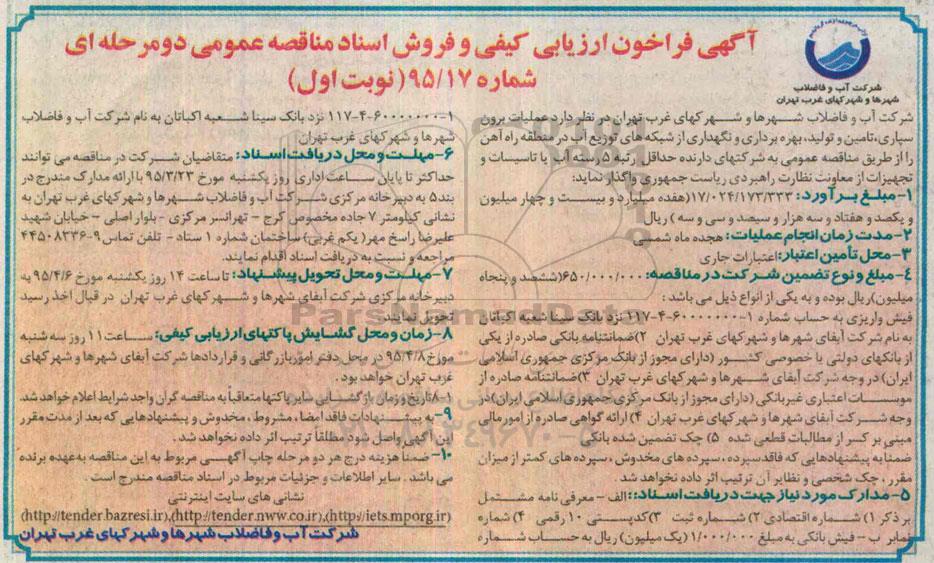 آگهی فراخون ارزیابی کیفی و فروش اسناد مناقصه عمومی دو مرحله ای
شماره ۹۵/۱۷ (نوبت اول)
شرکت آب و فاضلاب
شهرها و شهرکهای غرب تهران
شرکت آب و فاضلاب شهرها و شهرکهای غرب تهران در نظر دارد عملیات برون
سپاری،تامین و تولید، بهره برداری و نگهداری از شبکه های توزیع آب در منطقه راه آهن
را از طریق مناقصه عمومی به شرکتهای دارنده حداقل رتبه ۵ رسته آب یا تاسیسات و
تجهیزات از معاونت نظارت راهبردی ریاست جمهوری واگذار نماید:
۱- مبلغ برآورد: ۱۷/۰۲۴/۱۷۳/۳۳۳(هفده میلیارد و بیست و چهار میلیون
و یکصد و هفتاد و سه هزار و سیصد و سی و سه ) ریال
۲- مدت زمان انجام عملیات: هجده ماه شمسی
۳- محل تأمین اعتبار: اعتبارات جاری
۴- مبلغ و نوع تضمین شرکت در مناقصه: ۶۵۰/۰۰۰/۰۰۰(ششصد و پنجاه
میلیون)ریال بوده و به یکی از انواع ذیل می باشد :
فیش واریزی به حساب شماره ۱-۶۰۰۰۰۰۰۰-۴-۱۱۷ نزد بانک سینا شعبه اکباتان
به نام شرکت آبفای شهرها و شهرکهای غرب تهران ۲)ضمانتنامه بانکی صادره از یکی
از بانکهای دولتی یا خصوصی کشور (دارای مجوز از بانک مرکزی جمهوری اسلامی
ایران) در وجه شرکت آبفای شهرها و شهرکهای غرب تهران ۳)ضمانتنامه صادره از
موسسات اعتباری غیربانکی (دارای مجوز از بانک مرکزی جمهوری اسلامی ایران)در
وجه شرکت آبفای شهرها و شهرکهای غرب تهران ۴) ارائه گواهی صادره از امور مالی
مبنی بر کسر از مطالبات قطعی شده ۵) چک تضمین شده بانکی
ضمنا به پیشنهادهایی که فاقد سپرده، سپرده های مخدوش ، سپرده های کمتر از میزان
مقرر ، چک شخصی و نظایر آن ترتیب اثر داده نخواهد شد.
۵- مدارک مورد نیاز جهت دریافت اسناد: الف - معرفی نامه مشتمل
بر ذکر ۱) شماره اقتصادی ۲) شماره ثبت ۳)کدپستی ۱۰ رقمی ۴) شماره
نمابر ب - فیش بانکی به مبلغ ۱/۰۰۰/۰۰۰ (یک میلیون) ریال به حساب شماره
۱-۶۰۰۰۰۰۰۰-۴-۱۱۷ نزد بانک سینا شعبه اکباتان به نام شرکت آب و فاضلاب
شهرها و شهرکهای غرب تهران
۶- مهلت و محل دریافت اسناد: متقاضیان شرکت در مناقصه می توانند
حداکثر تا پایان ساعت اداری روز یکشنبه مورخ ۹۵/۳/۲۳ با ارائه مدارک مندرج در
بند۵ به دبیرخانه مرکزی شرکت آب و فاضلاب شهرها و شهرکهای غرب تهران به
نشانی کیلومتر ۷ جاده مخصوص کرج - تهرانسر مرکزی - بلوار اصلی - خیابان شهید
علیرضا راسخ مهر( یکم غربی) ساختمان شماره ۱ ستاد - تلفن تماس ۹-۴۴۵۰۸۳۳۶
مراجعه و نسبت به دریافت اسناد اقدام نمایند.
۷- مهلت و محل تحویل پیشنهاد: تا ساعت ۱۴ روز یکشنبه مورخ ۹۵/۴/۶ به
دبیرخانه مرکزی شرکت آبفای شهرها و شهرکهای غرب تهران در قبال اخذ رسید
تحویل نمایند.
۸- زمان و محل گشایش پاکتهای ارزیابی کیفی: ساعت ۱۱ روز سه شنبه
مورخ ۹۵/۴/۸ در محل دفتر امور بازرگانی و قراردادها شرکت آبفای شهرها و شهرکهای
غرب تهران خواهد بود .
۸-۱ تاریخ و زمان بازگشایی سایر پاکتها متعاقباً به مناقصه گران واجد شرایط اعلام خواهد شد.
۹- به پیشنهادات فاقد امضا ، مشروط ، مخدوش و پیشنهادهایی که بعد از مدت مقرر
این آگهی واصل شود مطلقاً ترتیب اثر داده نخواهد شد.
۱۰- ضمنا هزینه درج هر دو مرحله چاپ آگهی مربوط به این مناقصه به عهده برنده
می باشد . سایر اطلاعات و جزئیات مربوط در اسناد مناقصه مندرج است .
نشانی های سایت اینترنتی
(http://tender.bazresi.ir),(http://tender.nww.co.ir),(http://iets.mporg.ir)
شرکت آب و فاضلاب شهرها و شهرکهای غرب تهران
ParsNamadData